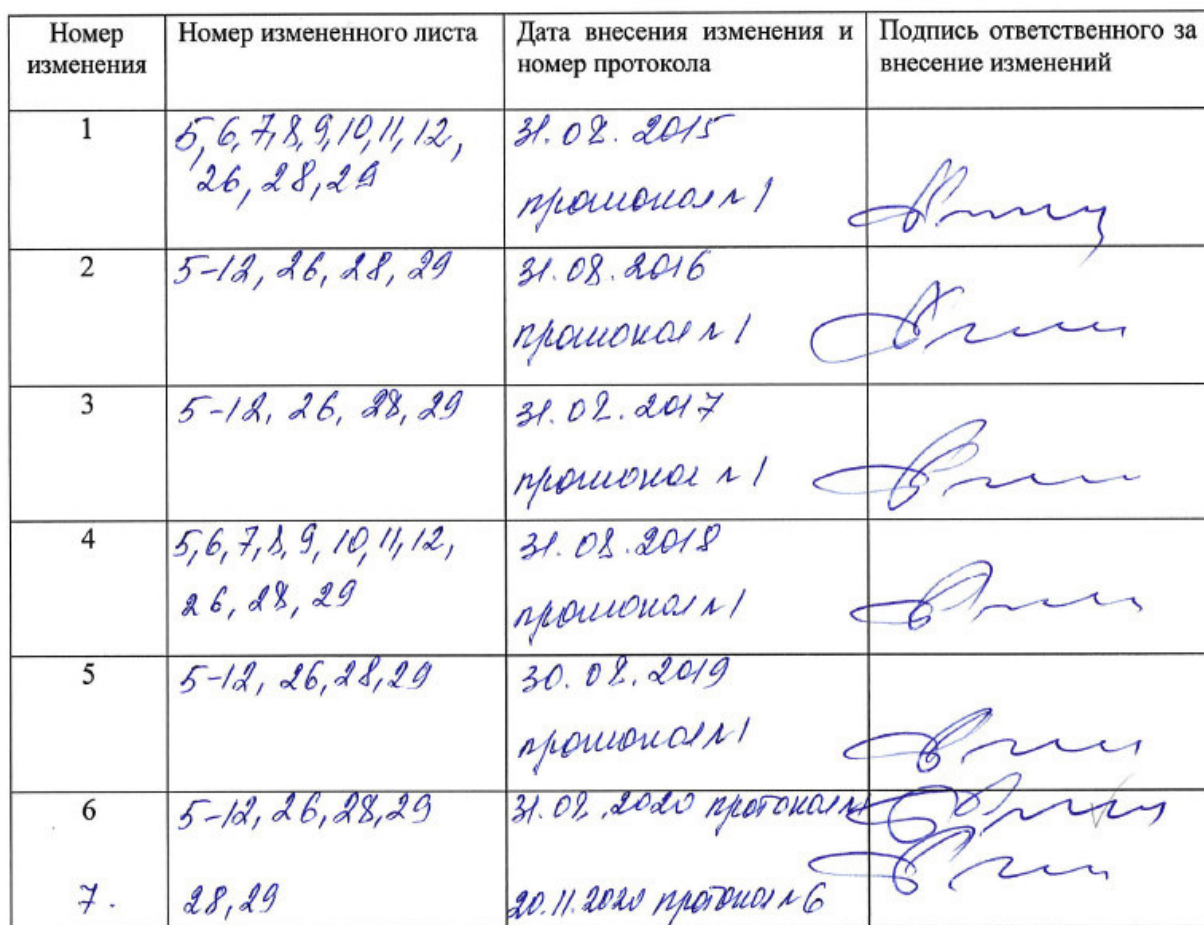 Номер изменения
Номер измененного листа
Дата внесения изменения и номер протокола
Подпись ответственного за внесение изменений
1
5,6,7,8,9,10,11,12,
26,28,29
31.08.2015
протокол №1
2
5-12, 26, 28, 29
31.08.2016
протокол №1
3
5-12, 26, 28, 29
31.08.2017
протокол №1
4
5,6,7,8,9,10,11,12,
26,28,29
31.08.2018
протокол №1
5
5-12, 26,28,29
30.08.2019
протокол №1
6
5-12,26,28,29
31.08.2020 протокол №1
7.
28,29
20.11.2020 протокол №6